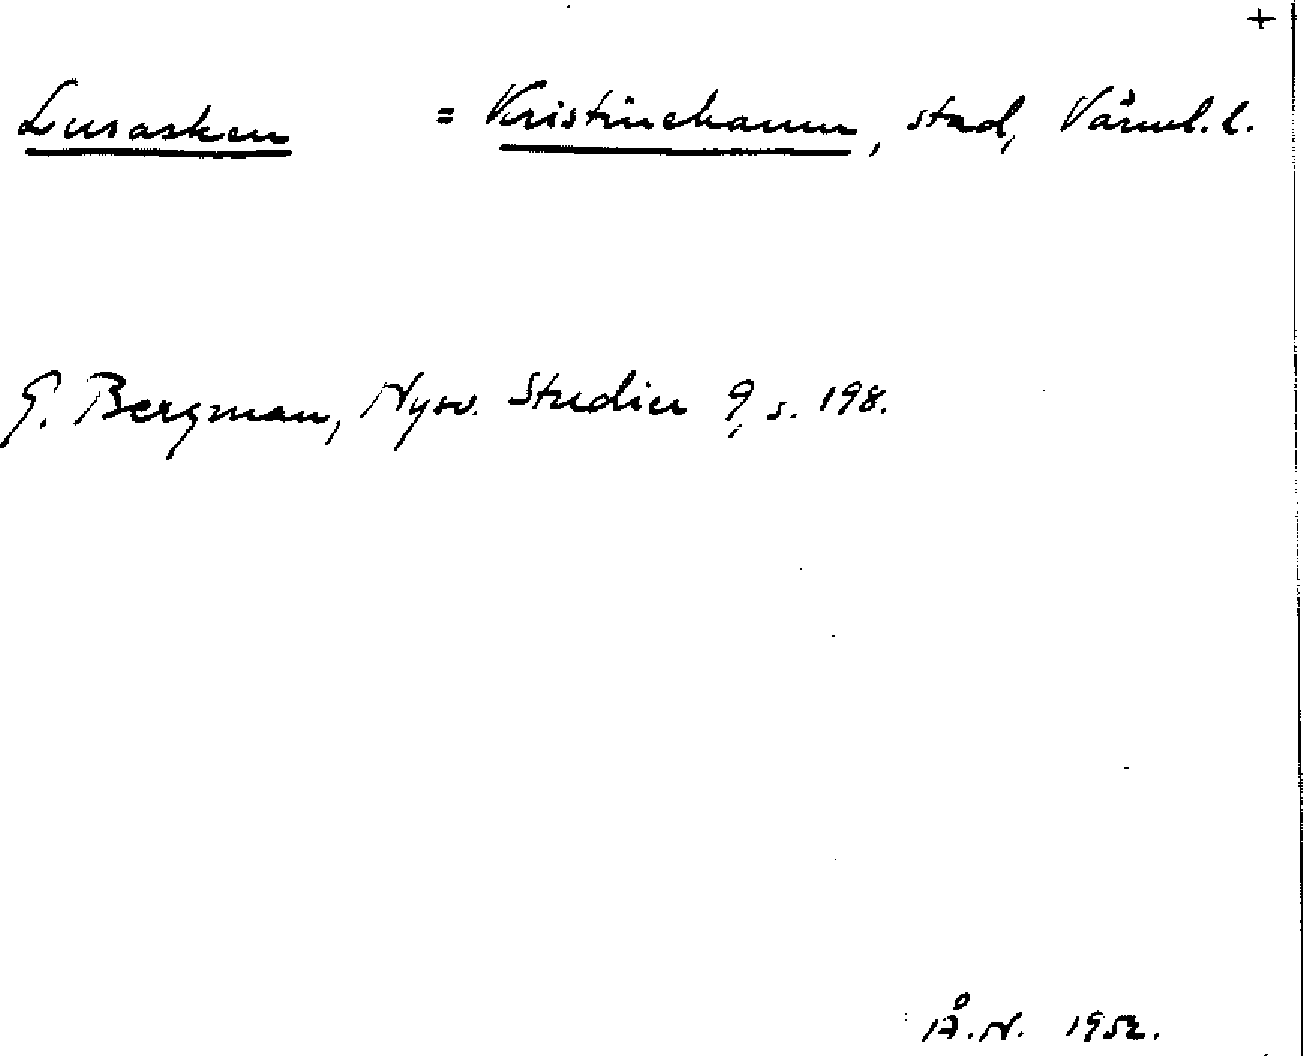 +
Lusasken = Kristinehamn, stad, Värml. l.
G. Bergman, Nysv. Studier 9, s. 198.
Å. N. 1952.